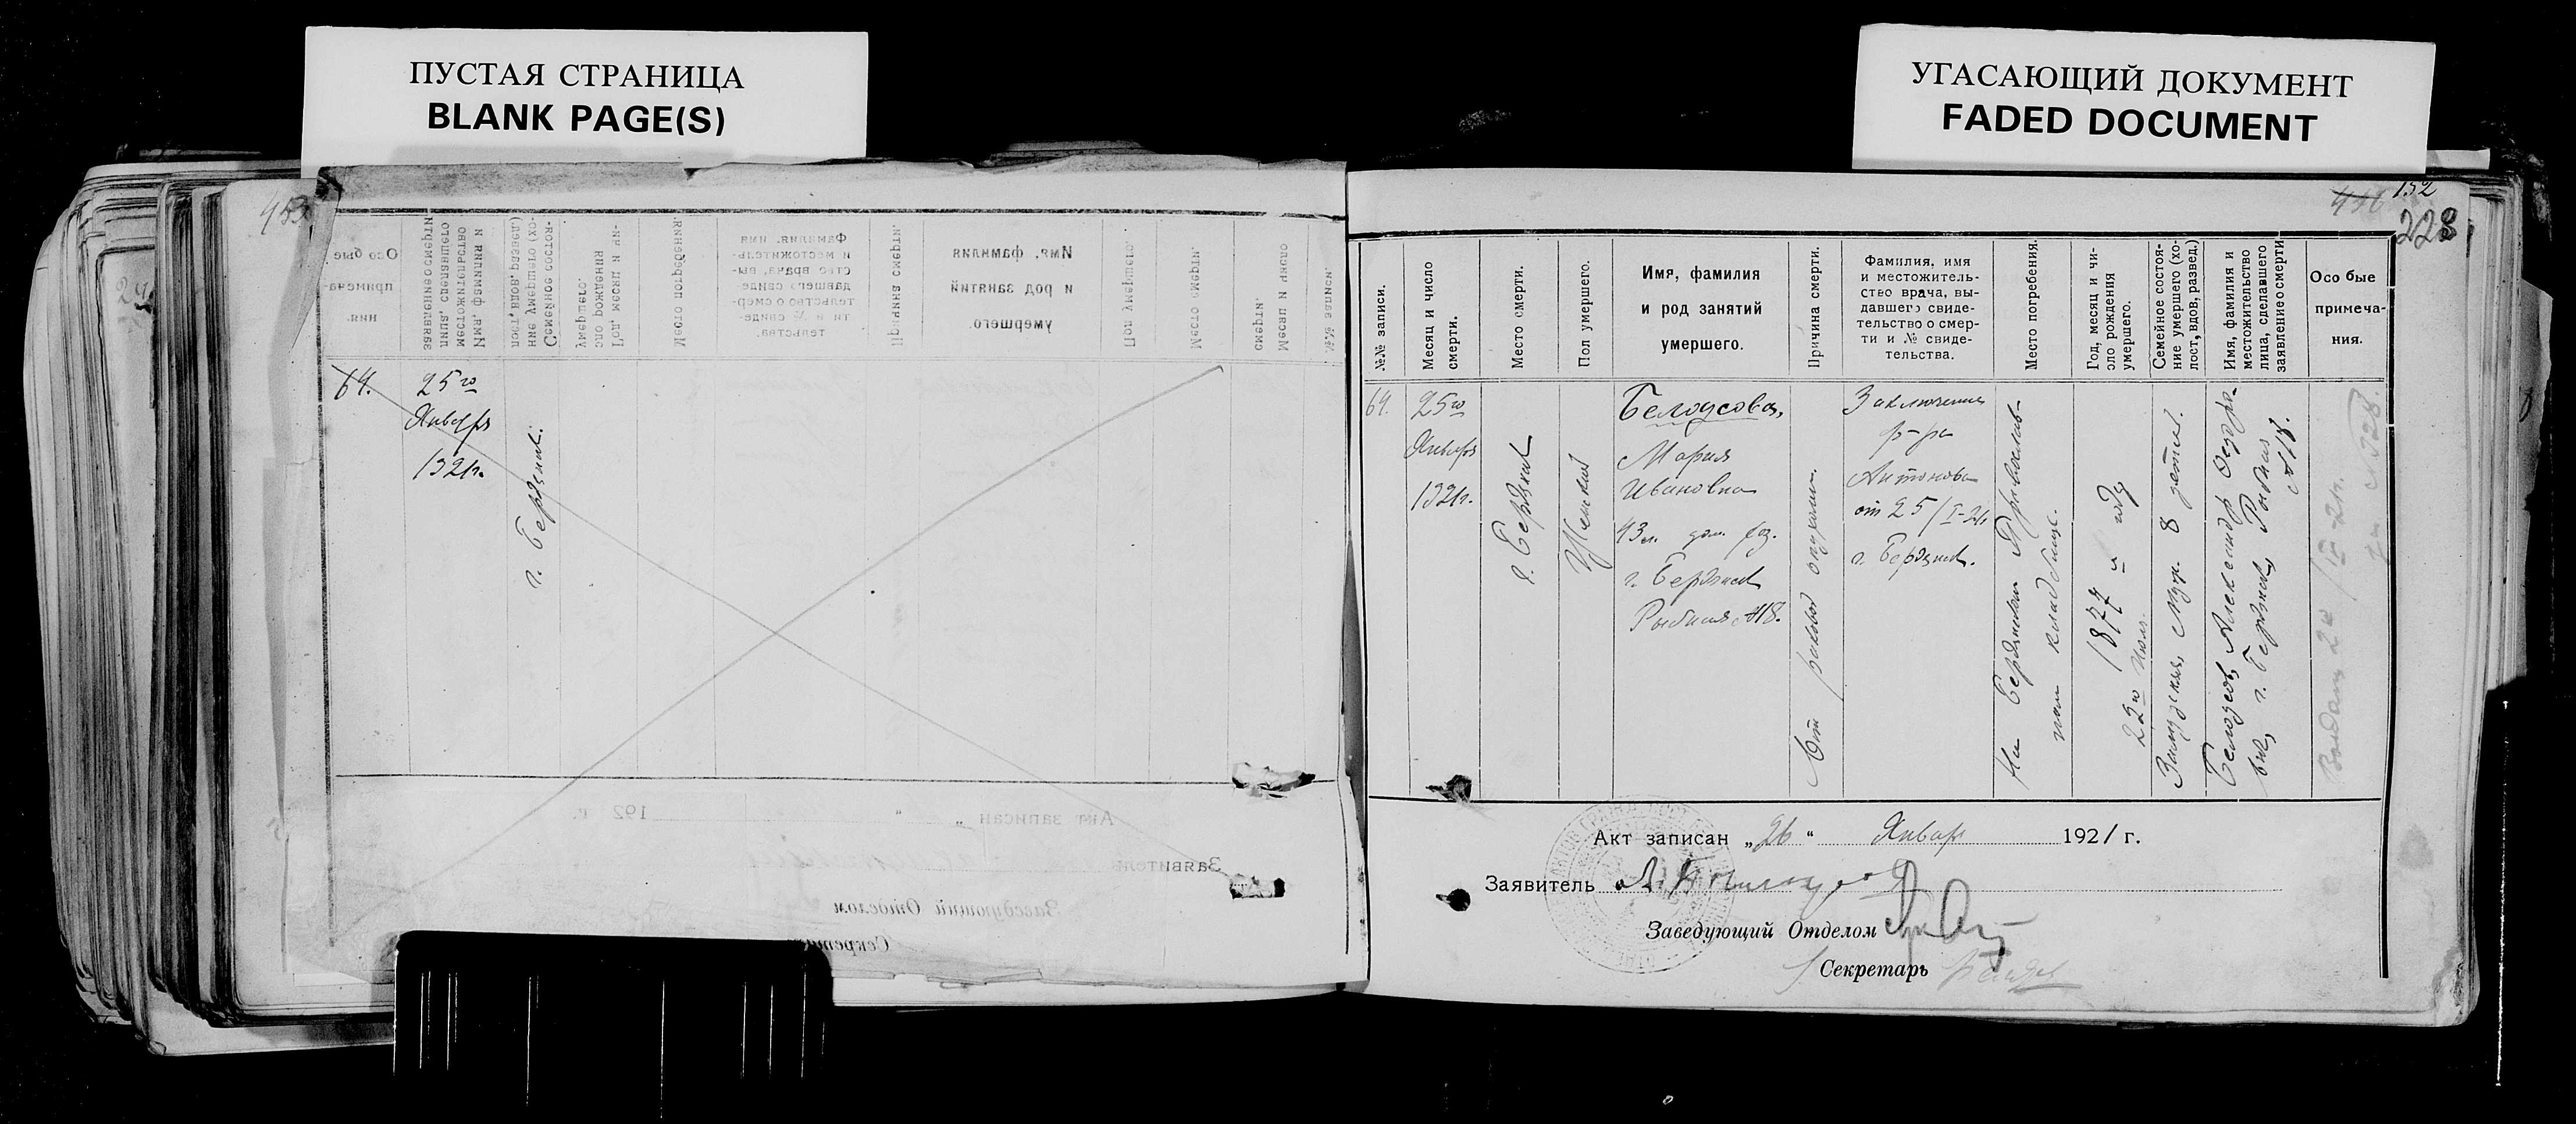 ПУСТАЯ СТРАНИЦА
BLANK PAGE(S)
УГАСАЮЩИЙ ДОКУМЕНТ
FADED DOCUMENT
453
64.
25го
Января
1921г.
г. Бердянск.
152
228
№№ записи.
Месяц и число
смерти.
Место смерти.
Пол умершего.
Имя, фамилия
и род занятий
умершего.
Причина смерти.
Фамилия, имя
и местожитель-
ство врача, вы-
давшего свиде-
тельство о смер-
ти и № свиде-
тельства.
Место погребения.
Год, месяц и чи-
сло рождения
умершего.
Семейное состоя-
ние умершего (хо-
лост, вдов, развед.)
Имя, фамилия и
местожительство
лица, сделавшего
заявление о смерти
Особые
примеча-
ния.
64.
25го
Января
1921г.
г. Бердянск
Женский
Белоусова,
Мария
Ивановна
43 л. дом. хоз.
г. Бердянск
Рыбная №18.
От раковой опухоли.
Заключение
д-ра
Антонова
от 25/I-21г.
г. Бердянск.
На Бердянском Православ-
ном кладбище.
1877 г.
22го Июля.
Замужняя, муж. 8 детей.
Белоусов, Александр Федоро-
вич, г. Бердянск, Рыбная
№18.
Акт записан „26“ Января 1921 г.
Заявитель
Заведующий Отделом
Секретарь